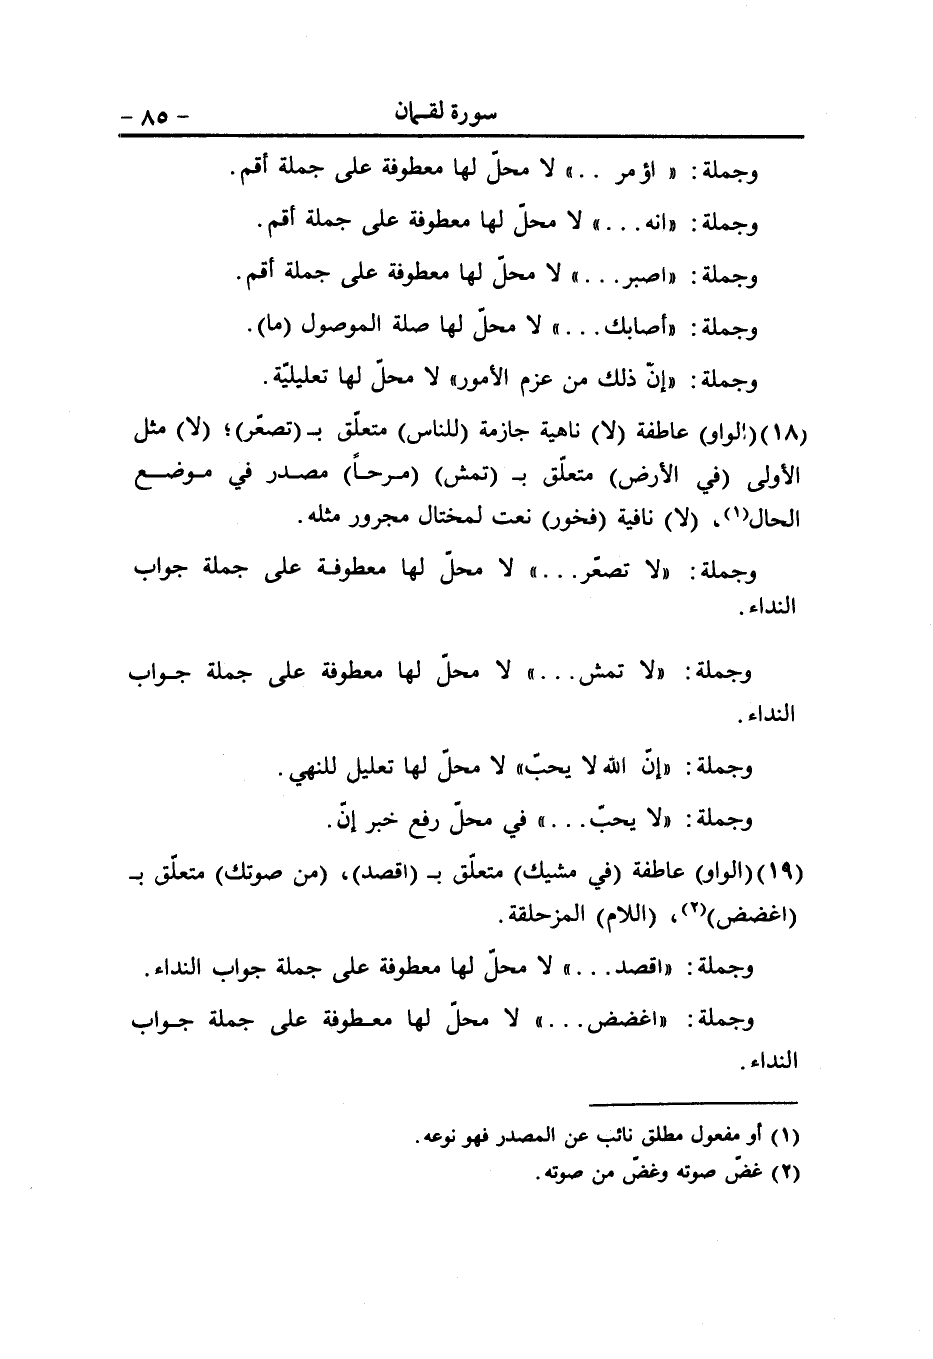 سورة لقمان - ٨٥ -
وجملة: « اؤمر . .» لا محلّ لها معطوفة على جملة أقم.
وجملة: «انه. . .» لا محلّ لها معطوفة على جملة أقم.
وجملة: «اصبر. . .» لا محلّ لها معطوفة على جملة أقم.
وجملة: «أصابك. . .» لا محلّ لها صلة الموصول (ما).
وجملة: «إنّ ذلك من عزم الأمور» لا محلّ لها تعليليّة.
(١٨)(الواو) عاطفة (لا) ناهية جازمة (للناس) متعلّق بـ(تصعّر)؛ (لا) مثل
الأولى (في الأرض) متعلّق بـ (تمش) (مرحاً) مصدر في موضع
الحال(١)، (لا) نافية (فخور) نعت لمختال مجرور مثله.
وجملة: «لا تصعّر. . .» لا محلّ لها معطوفة على جملة جواب
النداء.
وجملة: «لا تمش. . .» لا محلّ لها معطوفة على جملة جواب
النداء.
وجملة: «إنّ الله لا يحبّ» لا محلّ لها تعليل للنهي.
وجملة: «لا يحبّ. . .» في محلّ رفع خبر إنّ.
(١٩)(الواو) عاطفة (في مشيك) متعلّق بـ (اقصد)، (من صوتك) متعلّق بـ
(اغضض)(٢)، (اللام) المزحلقة.
وجملة: «اقصد. . .» لا محلّ لها معطوفة على جملة جواب النداء.
وجملة: «اغضض. . .» لا محلّ لها معطوفة على جملة جواب
النداء.
(١) أو مفعول مطلق نائب عن المصدر فهو نوعه.
(٢) غضّ صوته وغضّ من صوته.